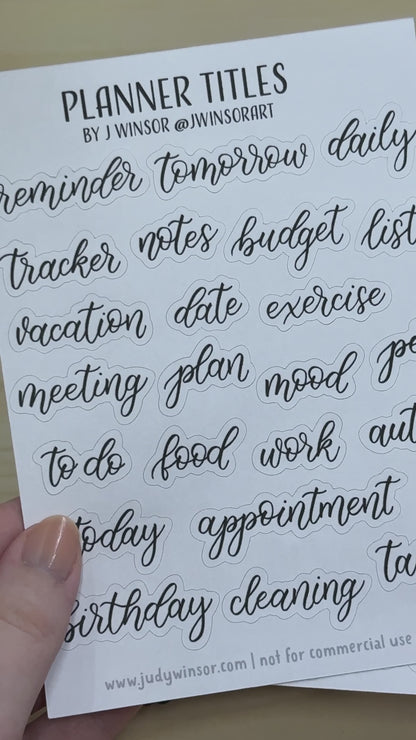 PLANNER TITLES
BY J WINSOR @JWINSORART
reminder tomorrow daily
tracker notes budget list
vacation date exercise
meeting plan mood
to do food work
today appointment
birthday cleaning
www.judywinsor.com | not for commercial use